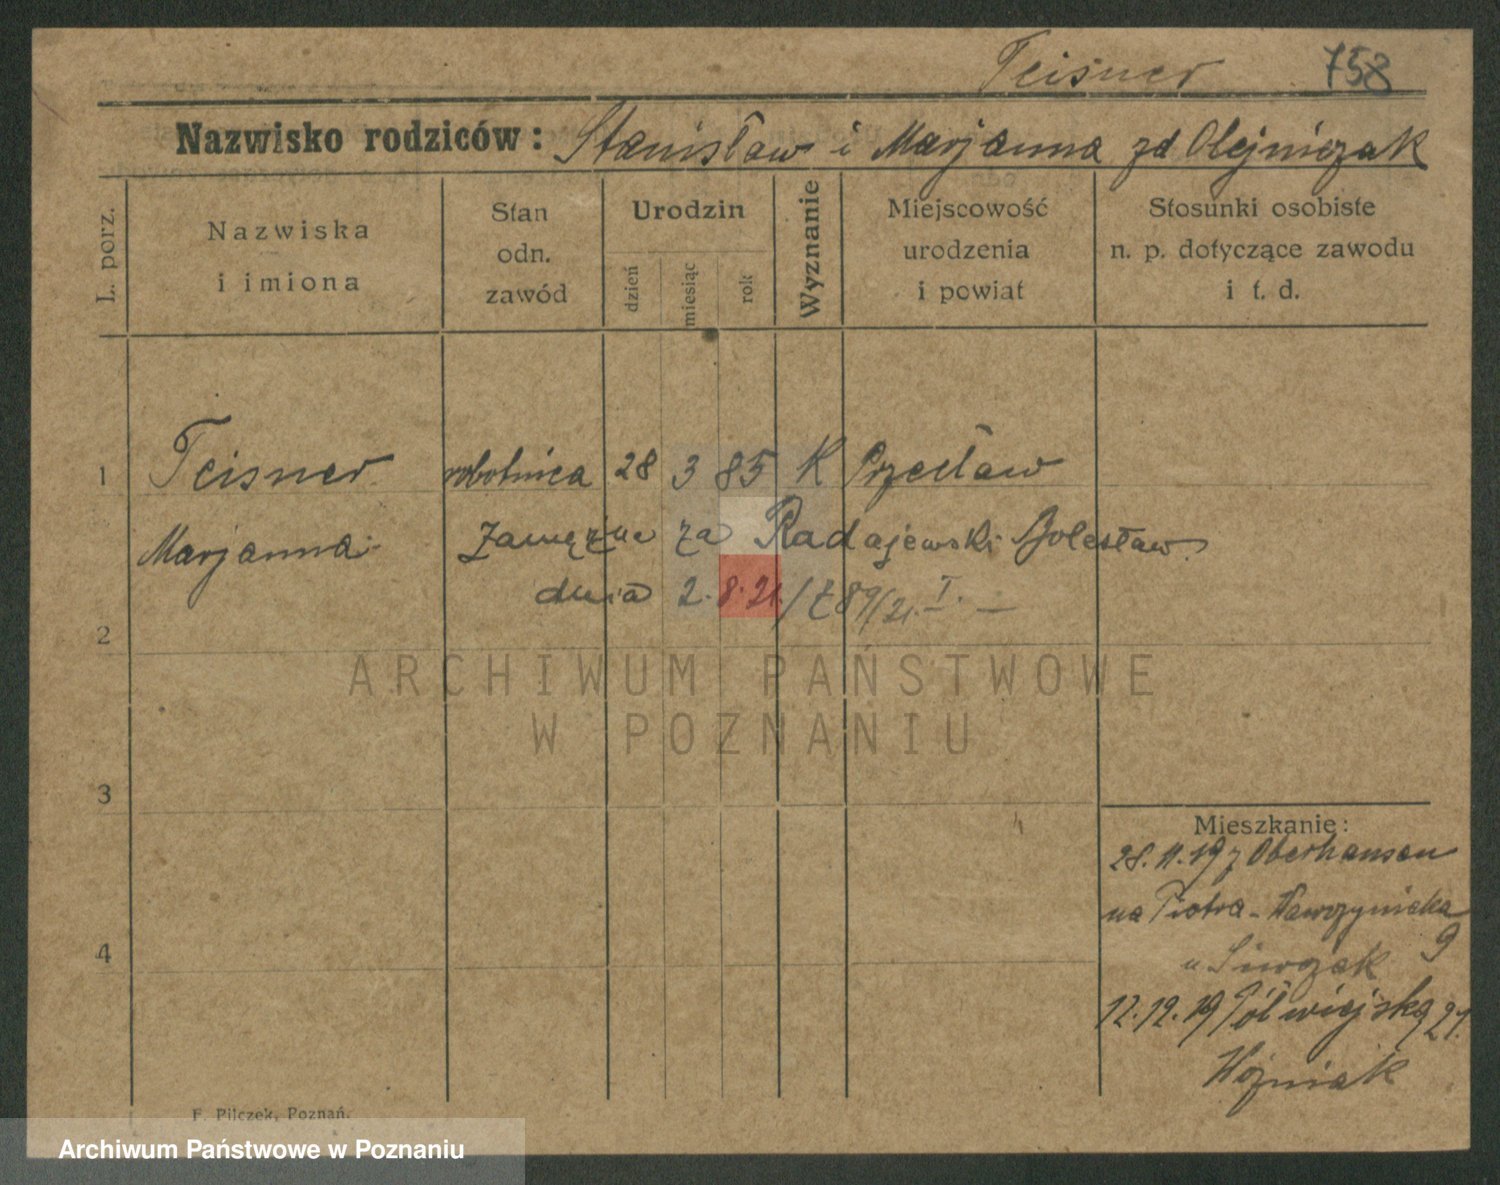 Teisner 758
Nazwisko rodziców: Stanisław i Marjanna zd Olejniczak
L. porz.
Nazwiska
i imiona
Stan
odn.
zawód
Urodzin
dzień
miesiąc
rok
Wyznanie
Miejscowość
urodzenia
i powiat
Stosunki osobiste
n. p. dotyczące zawodu
i t. d.
1 Teisner robotnica 28 3 85 K Przecław
Marjanna zamężna za Radajewski Bolesław
dnia 2. 8. 21. / Ł 89/21. I.
2
ARCHIWUM PAŃSTWOWE
W POZNANIU
3
Mieszkanie:
28. 11. 19 z Oberhausen
na Piotra-Wawrzyniaka
9
u Siwczak
4
12. 12. 19 Półwiejska 21.
Woźniak
F. Pilczek, Poznań.
Archiwum Państwowe w Poznaniu